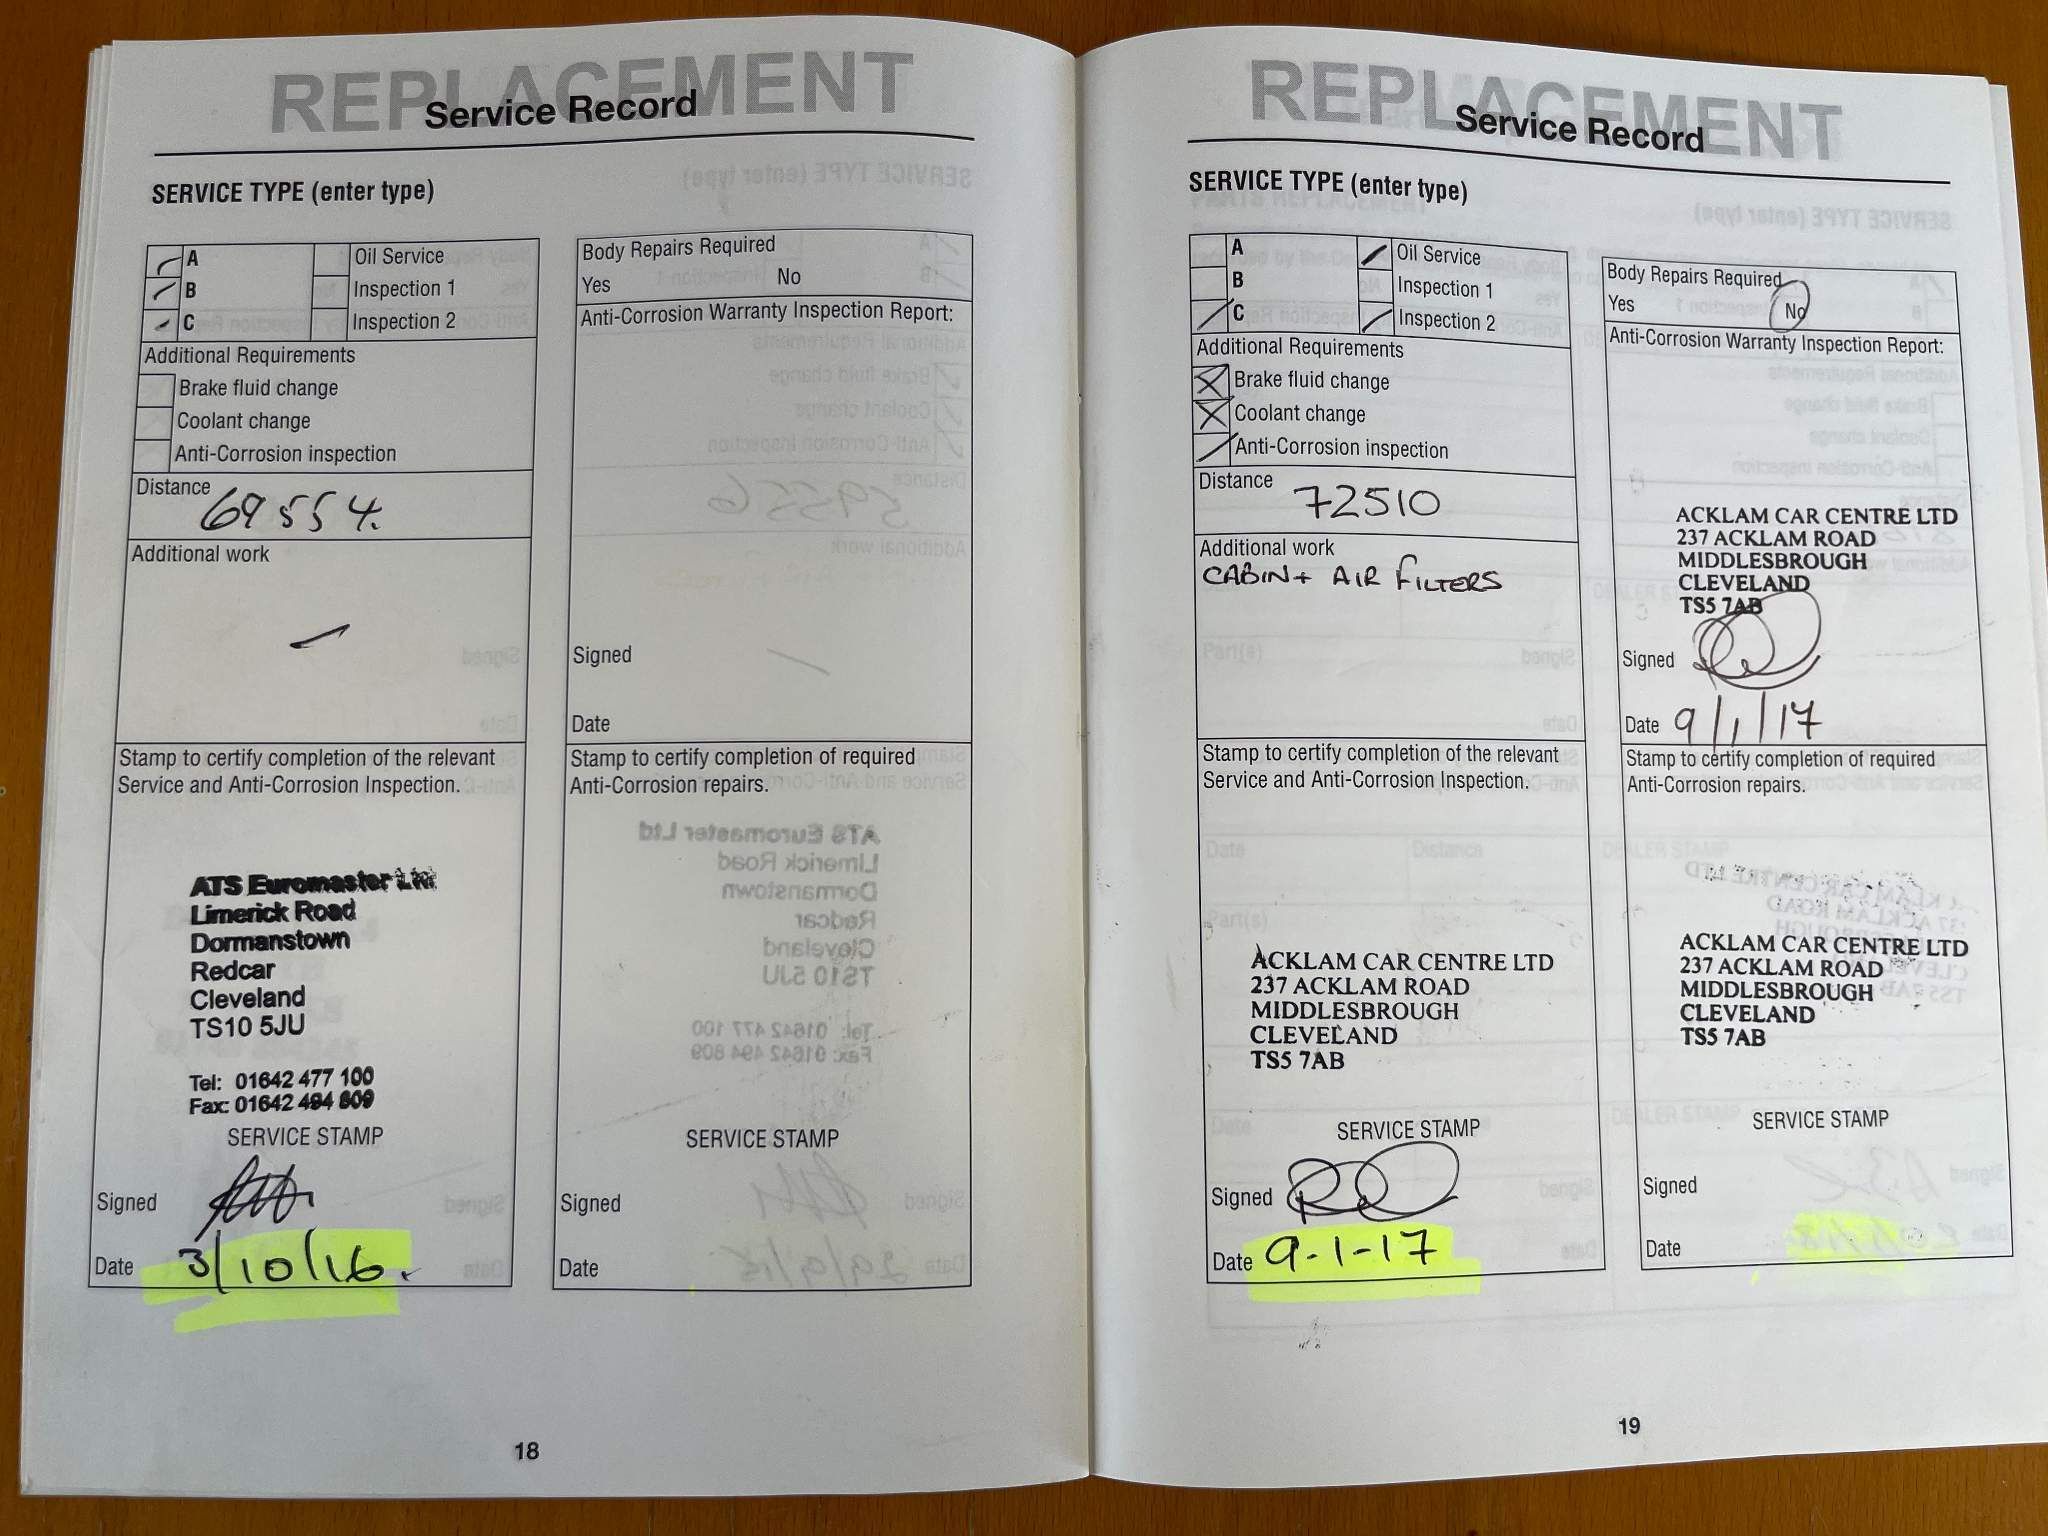 REPLACEMENT
Service Record
SERVICE TYPE (enter type)
A Oil Service
B Inspection 1
C Inspection 2
Additional Requirements
Brake fluid change
Coolant change
Anti-Corrosion inspection
Distance
69554.
Additional work
Stamp to certify completion of the relevant
Service and Anti-Corrosion Inspection.
ATS Euromaster Ltd
Limerick Road
Dormanstown
Redcar
Cleveland
TS10 5JU
Tel: 01642 477 100
Fax: 01642 494 809
SERVICE STAMP
Signed
Date 3/10/16.
Body Repairs Required
Yes No
Anti-Corrosion Warranty Inspection Report:
Signed
Date
Stamp to certify completion of required
Anti-Corrosion repairs.
SERVICE STAMP
Signed
Date
18
REPLACEMENT
Service Record
SERVICE TYPE (enter type)
A Oil Service
B Inspection 1
C Inspection 2
Additional Requirements
Brake fluid change
Coolant change
Anti-Corrosion inspection
Distance
72510
Additional work
CABIN + AIR FILTERS
Stamp to certify completion of the relevant
Service and Anti-Corrosion Inspection.
ACKLAM CAR CENTRE LTD
237 ACKLAM ROAD
MIDDLESBROUGH
CLEVELAND
TS5 7AB
SERVICE STAMP
Signed
Date 9-1-17
Body Repairs Required
Yes No
Anti-Corrosion Warranty Inspection Report:
ACKLAM CAR CENTRE LTD
237 ACKLAM ROAD
MIDDLESBROUGH
CLEVELAND
TS5 7AB
Signed
Date 9/1/17
Stamp to certify completion of required
Anti-Corrosion repairs.
ACKLAM CAR CENTRE LTD
237 ACKLAM ROAD
MIDDLESBROUGH
CLEVELAND
TS5 7AB
SERVICE STAMP
Signed
Date
19